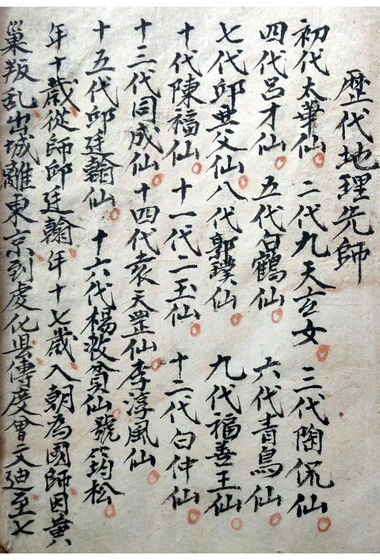 歷代地理先師
初代太華仙 二代九天玄女 三代陶侃仙
四代呂才仙 五代白鶴仙 六代青烏仙
七代邱其父仙 八代郭璞仙 九代福善王仙
十代陳福仙 十一代二玉仙 十二代白仲仙
十三代同成仙 十四代袁天罡仙李淳風仙
十五代邱廷翰仙 十六代楊救貧仙號筠松
年十歲從師邱廷翰年十七歲入朝為國師因黃
巢叛乱出城離東京到虔化县傳度曾文迪至七